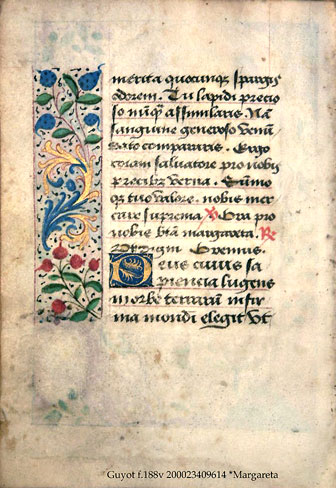 merita quocunq spargis
odorem. Tu lapidi precio
so nuq assimilaris. Nā
sanguine generoso venū
dato compararis. Ergo
coram saluatore pro nobis
precib; verna. Et
q tuo valore. nobis mer
care suprema V Ora pro
nobis btā margareta. Re
Oremus.
Deus cuius sa
piencia lugens
morbe terrarū infir
ma mondi elegit vt
Guyot f.188v 200023409614 *Margareta